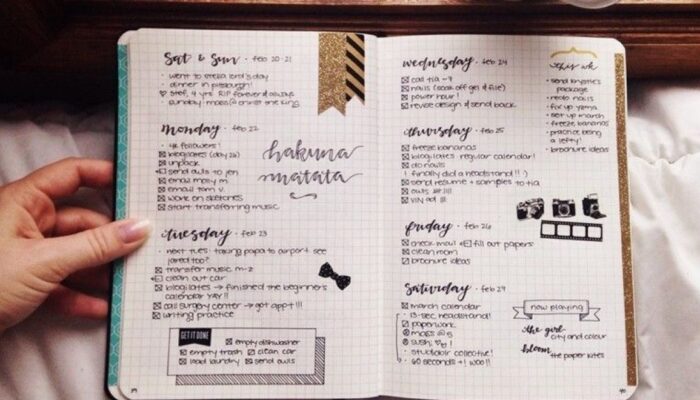 Sat & Sun · feb 20-21
· went to stella lord's day
dinner in pittsburgh!
♡ stef, 4 yrs. RIP forever & always
sunday: mass @ christ the king
monday · feb 22
· 4k followers!
blogilates (day 26)
unpack
send owls to jen
email molly m.
email tom v.
work on sketches
start transferring music
hakuna
matata
tuesday · feb 23
· next tues: taking papa to airport see
jared too?
transfer music m-z
clean out car
blogilates → finished the beginners
calendar yay!!
call surgery center → got appt!!!
writing practice
GET IT DONE
empty dishwasher
empty trash
clean car
load laundry
send owls
39
wednesday · feb 24
call tia ~9
nails (soak off gel & file)
power hour!
revise design & send back
thursday · feb 25
freeze bananas
blogilates regular calendar!
do nails
! finally did a headstand!! :)
send resume + samples to tia
owls #!!!
vin pd !!!
friday · feb 26
check mail
fill out papers
clean room
brochure ideas
Saturday · feb 27
march calendar
13-sec. headstand!
paperwork
mass @ 5
sushi ♡ !
studioair collective!
60 seconds +! woo!!
this wk
· send krystle's
package
· redo nails
· for up yama
· set up march
· freeze bananas
· practice being
a lefty!
· brochure ideas
now playing
the girl
city and colour
bloom
the paper kites
40